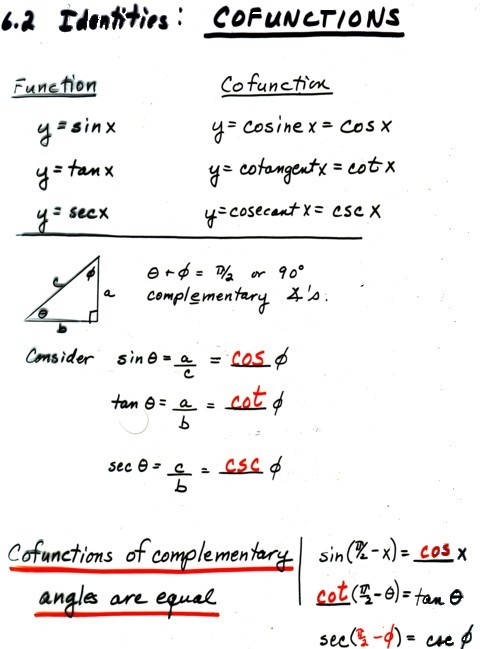 6.2 Identities: COFUNCTIONS
Function Cofunction
y = sin x y = cosine x = cos x
y = tan x y = cotangent x = cot x
y = sec x y = cosecant x = csc x
c ϕ a θ b
θ + ϕ = π/2 or 90°
complementary ∡'s.
Consider sin θ = a/c = cos ϕ
tan θ = a/b = cot ϕ
sec θ = c/b = csc ϕ
Cofunctions of complementary
angles are equal
sin(π/2 - x) = cos x
cot(π/2 - θ) = tan θ
sec(π/2 - ϕ) = csc ϕ